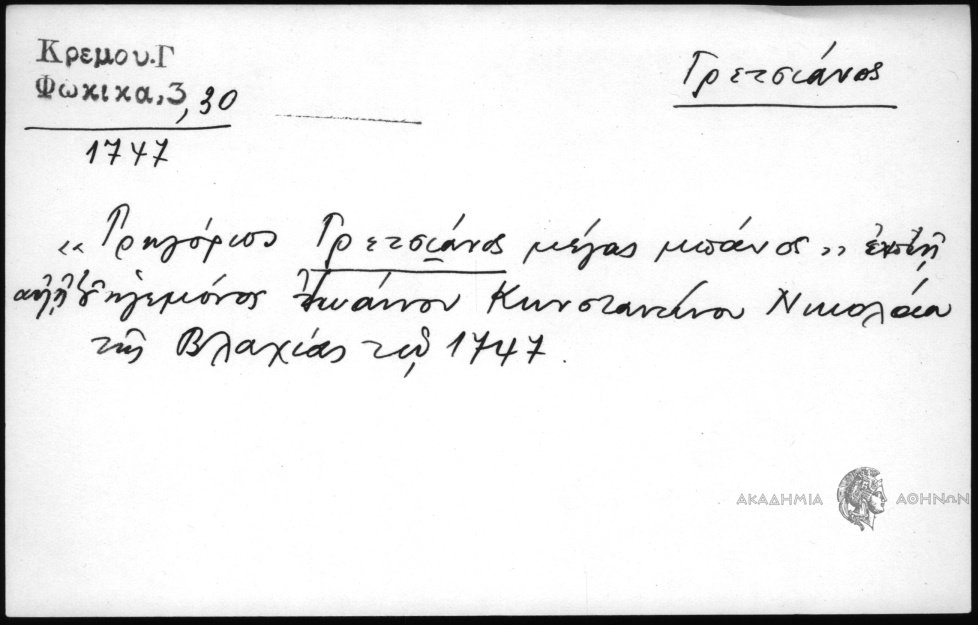 Κρεμου.Γ
Φωκικα,3,30
1747
Γρετσιάνος
“ Γρηγόριος Γρετσιάνος μέγας μπάνος ”
ἡγεμόνος Ἰωάννου Κωνσταντίνου Νικολάου
τῆς Βλαχίας τῷ 1747.
ΑΚΑΔΗΜΙΑ ΑΘΗΝΩΝ